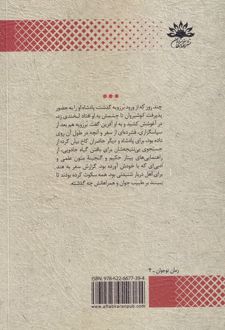 چند روز که از ورود برزویه گذشت، پادشاه او را به حضور
پذیرفت. انوشیروان تا چشمش به او افتاد لبخندی زد،
در آغوشش کشید و به او آفرین گفت. برزویه هم بعد از
سپاسگزاری، فشرده‌ای از سفر و آنچه در طول آن روی
داده بود، برای پادشاه و دیگر حاضران کاخ بیان کرد. از
جستجوی بی‌نتیجه‌شان برای یافتن گیاه جادویی، از
راهنمایی‌های بیدار حکیم و گنجینهٔ متون علمی و
ادبی‌ای که با خودش آورده بود. گزارش سفر به هند
برای اهل دربار شنیدنی بود. همه سکوت کرده بودند تا
ببینند بر طبیب جوان و همراهانش چه گذشته.
رمان نوجوان - ۴
ISBN: 978-622-6677-39-4
www.aftabkaranpub.com